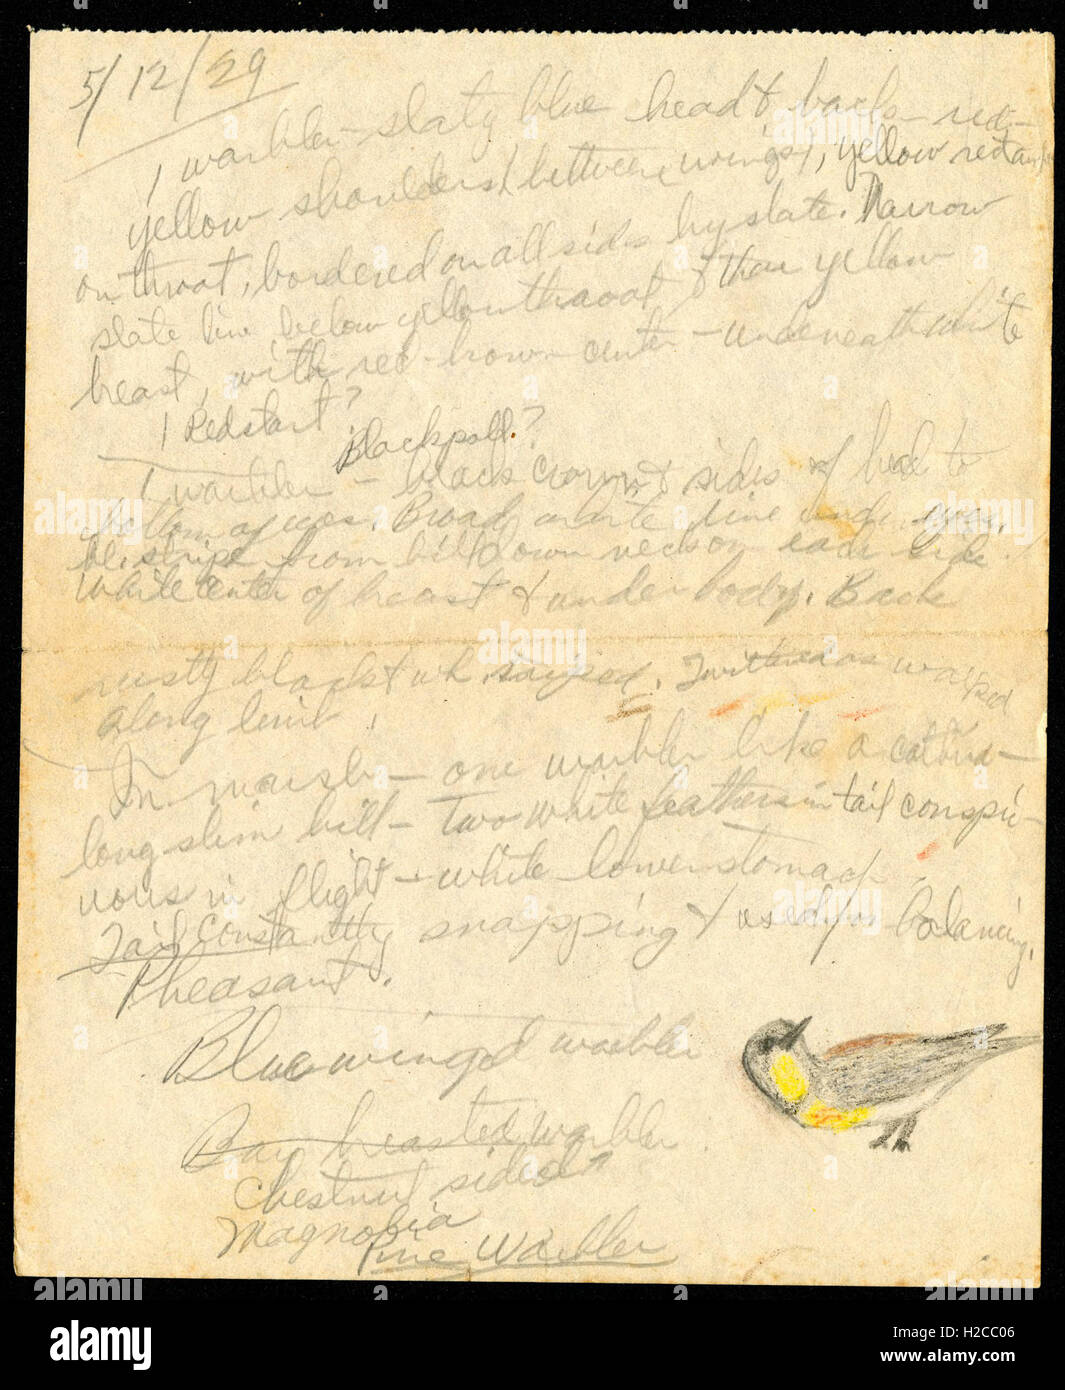 5/12/29
1 warbler - slaty blue head & back - red-
yellow shoulders (between wings), yellow
on throat, bordered on all sides by slate. Narrow
slate line below yellow throat & then yellow
breast, with red-brown center - underneath white
1 Redstart?
Blackpoll?
1 warbler - black crown & sides of head to
bottom of eyes. Broad white line under eyes.
bl. stripe from bill down neck on each side.
White center of breast & under body. Back
rusty black & wh. striped. walked
along limb.
In marsh - one warbler like a catbird -
long slim bill - two white feathers in tail conspic-
uous in flight - white lower stomach.
Tail constantly snapping & used for balancing.
Pheasant.
Blue winged warbler
Bay breasted warbler.
Chestnut sided?
Magnolia
Pine Warbler
alamy
a
alamy
Image ID: H2CC06
www.alamy.com